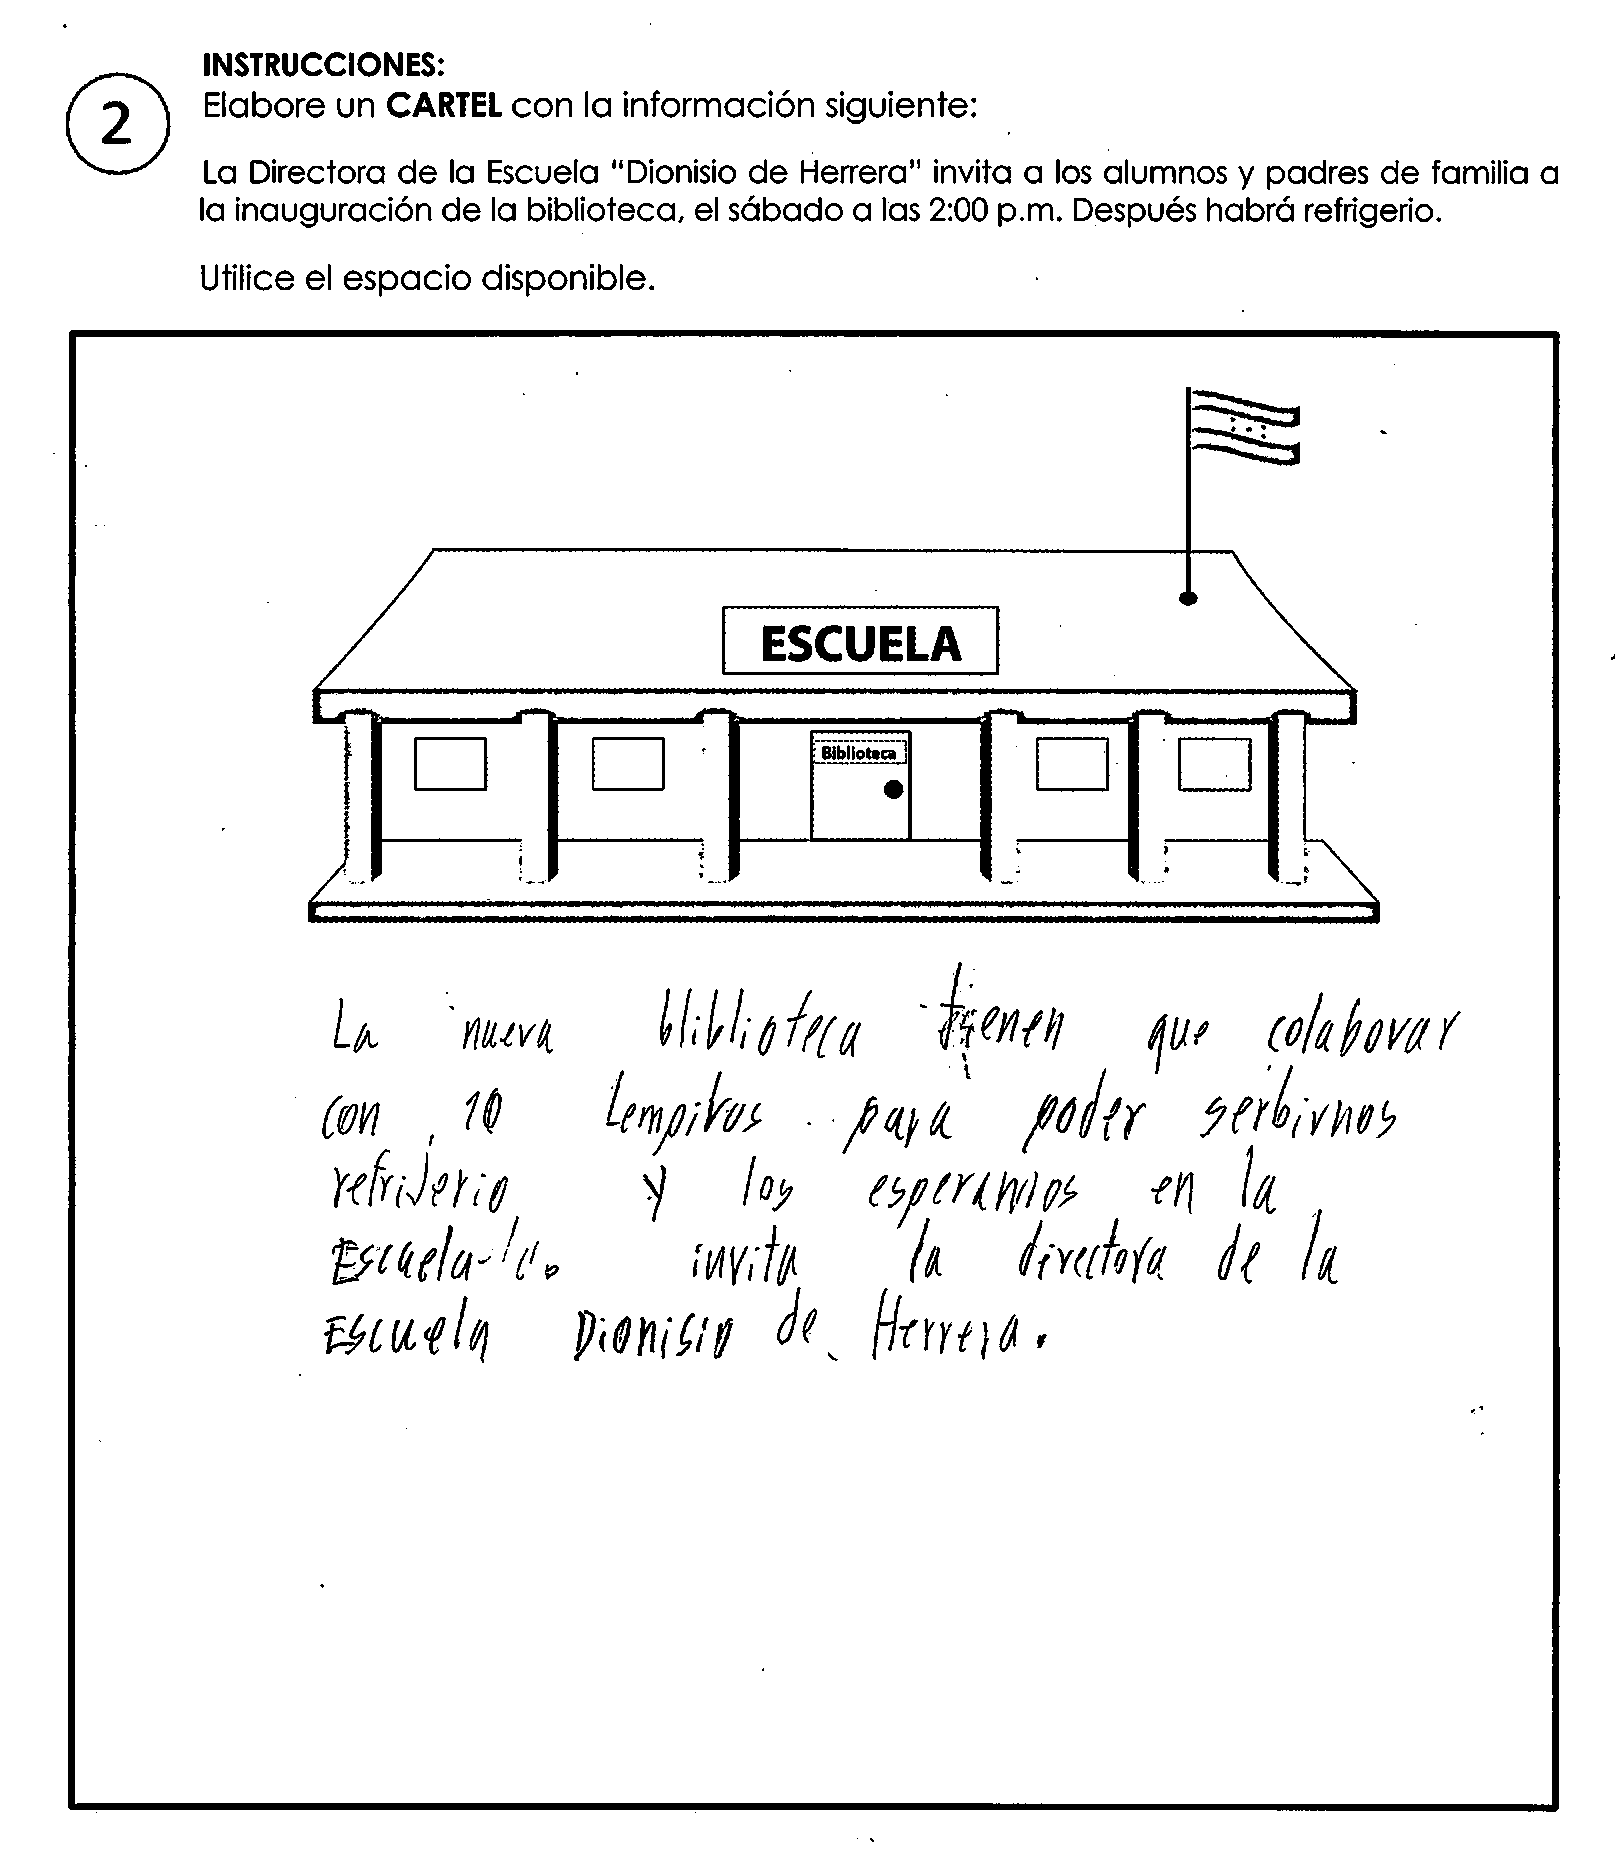 INSTRUCCIONES:
2
Elabore un CARTEL con la información siguiente:
La Directora de la Escuela "Dionisio de Herrera" invita a los alumnos y padres de familia a
la inauguración de la biblioteca, el sábado a las 2:00 p.m. Después habrá refrigerio.
Utilice el espacio disponible.
ESCUELA
Biblioteca
La nueva bliblioteca tienen que colaborar
con 10 Lempiras para poder serbirnos
refrijerio y los esperamos en la
Escuela invita la directora de la
Escuela Dionisio de Herrera.